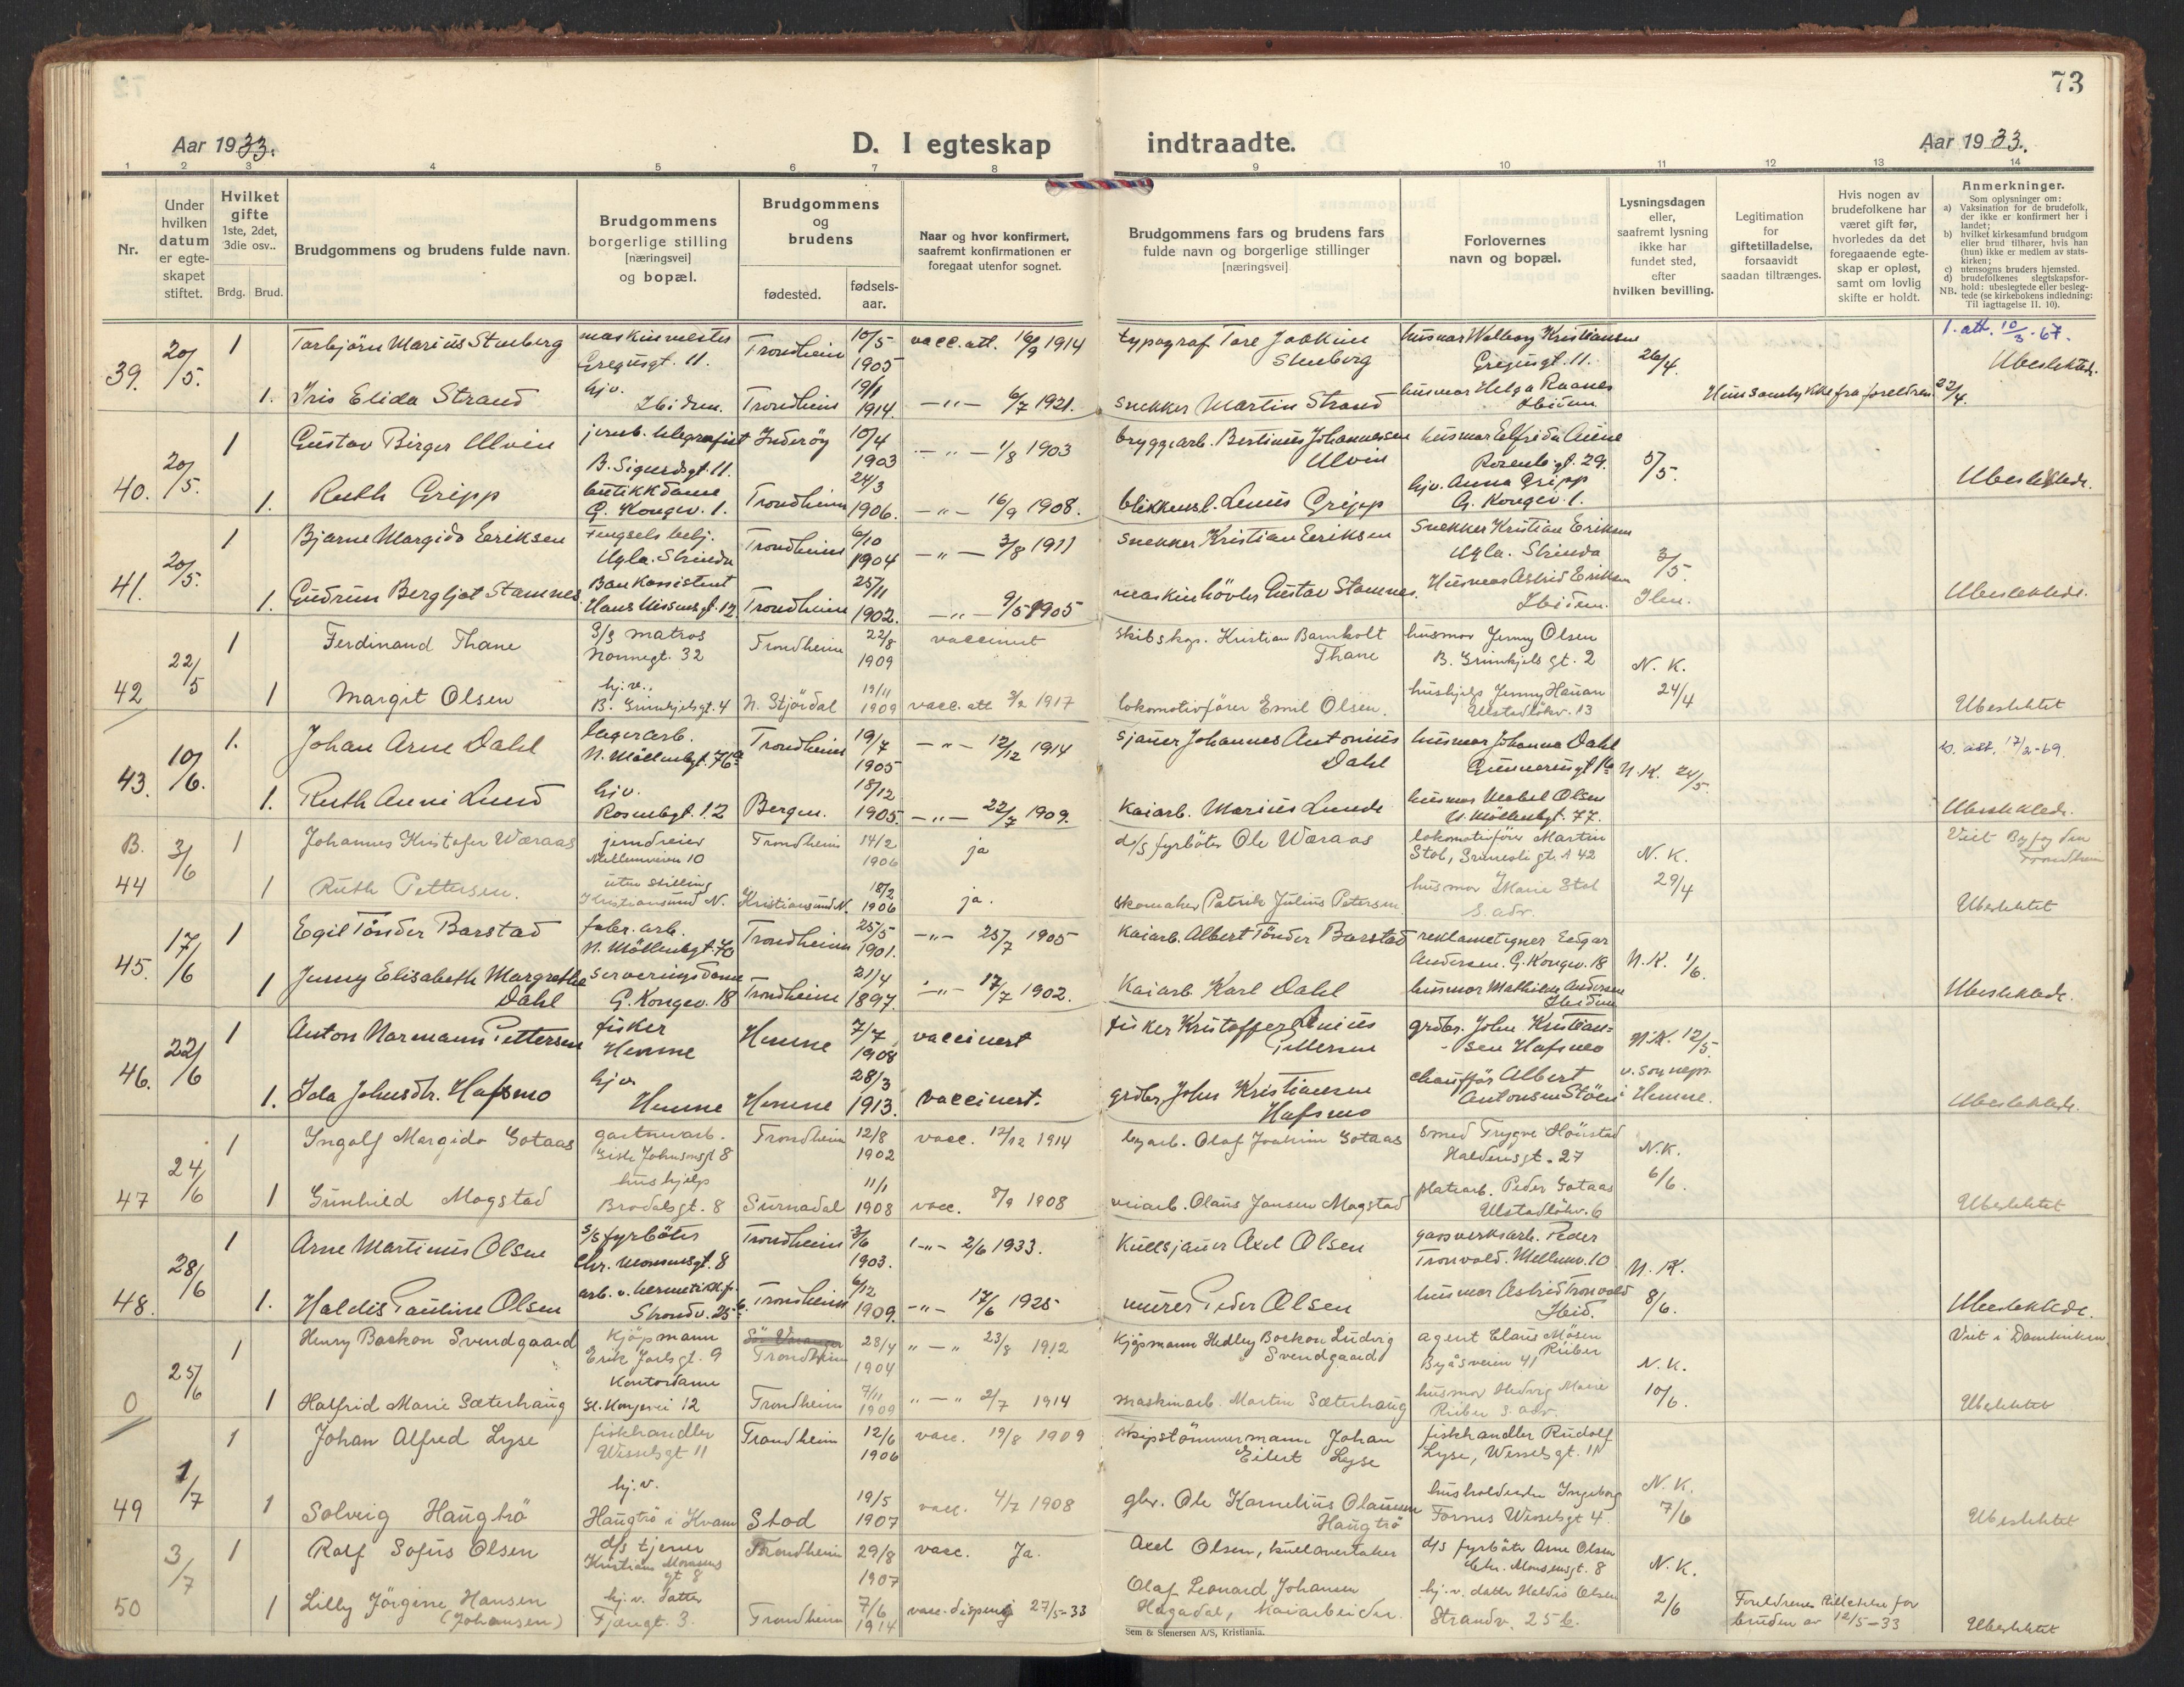 73
Aar 1933.
D. I egteskap indtraadte.
Aar 1933.
1 2 3 4 5 6 7 8 9 10 11 12 13 14
Nr.
Under hvilken datum er egteskapet stiftet.
Hvilket gifte 1ste, 2det, 3die osv..
Brdg. Brud.
Brudgommens og brudens fulde navn.
Brudgommens borgerlige stilling [næringsvei] og bopæl.
Brudgommens og brudens
fødested.
fødsels-aar.
Naar og hvor konfirmert, saafremt konfirmationen er foregaat utenfor sognet.
Brudgommens fars og brudens fars fulde navn og borgerlige stillinger [næringsvei]
Forlovernes navn og bopæl.
Lysningsdagen eller, saafremt lysning ikke har fundet sted, efter hvilken bevilling.
Legitimation for giftetilladelse, forsaavidt saadan tiltrænges.
Hvis nogen av brudefolkene har været gift før, hvorledes da det foregaaende egteskap er opløst, samt om lovlig skifte er holdt.
Anmerkninger.
Som oplysninger om:
a) Vaksination for de brudefolk, der ikke er konfirmert her i landet;
b) hvilket kirkesamfund brudgom eller brud tilhører, hvis han (hun) ikke er medlem av statskirken;
c) utensogns bruders hjemsted.
d) brudefolkenes slegtskapsforhold: ubeslegtede eller beslegtede (se kirkebokens indledning: Til iagttagelse II. 10).
NB.
39. 20/5. 1 Torbjörn Marius Stenberg maskinmester Gregusgt. 11. Trondheim 10/5 1905 vacc. att. 16/9 1914 typograf Tore Joakim Stenberg husmor Walborg Kristiansen Gregusgt. 11. 26/4. 1. att. 10/3-67. Ubeslektede.
1. Iris Elida Strand hjv. Ibidem. Trondheim 19/1 1914. —"— 6/7 1921. snekker Martin Strand husmor Helga Raanes Ibidem Hun samtykke fra foreldrene 22/4.
40. 20/5. 1 Gustav Birger Ulvin jernb. telegrafist B. Sigurdsgt. 11. Inderöy 10/4 1903 —"— 1/8 1903 bryggearb. Bertinius Johannesen Ulvin husmor Elfrida Aune Rosenb.gt. 29. 5/5. Ubeslektede.
1. Ruth Gripp butikkdame G. Kongev. 1. Trondheim 24/3 1906. —"— 16/9 1908. blikkensl. Linus Gripp hjv. Anna Gripp G. Kongev. 1.
41. 20/5. 1 Bjarne Margido Eriksen Fengsels betj. Ugla. Strinda Trondheim 6/10 1904 —"— 3/8 1911 snekker Kristian Eriksen snekker Kristian Eriksen Ugla. Strinda 3/5. Ilen. Ubeslektede.
1. Gudrun Bergljot Stamnes. Bankassistent Hans Nissensgt. 12. Trondheim 25/11 1902. —"— 9/5 1905 maskinhövler Gustav Stamnes. Husmor Astrid Eriksen Ibidem.
42 22/5 1 Ferdinand Thane S/S matros Nonnegt. 32 Trondheim 22/8 1909 vaccinert skibskpt. Kristian Barnholt Thane husmor Jenny Olsen B. Grimkjels gt. 2 N. K. 24/4 Ubeslektet
1 Margit Olsen hj.v., B. Grimkjelsgt. 4 N. Stjördal 19/11 1909 vacc. att 3/2 1917 lokomotivfører Emil Olsen. hushjelp Jenny Hanan Ulstadlökv. 13
43. 10/6. 1. Johan Arne Dahl lagerarb. N. Möllenbgt. 76a Trondheim 19/7 1905 —"— 12/12 1914 sjauer Johannes Antonius Dahl husmor Johanna Dahl Gunnerusgt. 1b N. K. 24/5. b. att. 17/2-69. Ubeslektede.
1. Ruth Anni Lund hjv. Rosenbgt. 12 Bergen. 18/12 1905. —"— 22/7 1909. Kaiarb. Marius Lunde husmor Mabel Olsen N. Möllenbgt. 77.
B. 44 3/6 1 Johannes Kristofer Wæraas jerndreier Mellemveien 10 Trondheim 14/2 1906 ja d/s fyrböter Ole Wæraas lokomotivfører Martin Stol, Grimesli gt. 42 N. K. 29/4 Viet Byfogden Trondheim Ubeslektet
1 Ruth Pettersen. uten stilling Kristiansund N. Kristiansund N. 18/2 1906 ja. skomaker Patrik Julius Petersen. husmor Marie Stol s. adr.
45. 17/6 1 Egil Tönder Barstad fabr. arb. N. Möllenbgt. 70 Trondheim 25/5 1901. —"— 25/7 1905 Kaiarb. Albert Tönder Barstad reklametegner Edgar Andersen. G. Kongev. 18 N. K. 1/6. Ubeslektede.
1 Jenny Elisabeth Margrethe Dahl serveringsdame G. Kongev. 18 Trondheim 21/4 1897. —"— 17/7 1902. Kaiarb. Karl Dahl husmor Mathilde Andersen Ibidem
46. 22/6 1 Anton Normann Pettersen fisker Hemne Hemne 7/7 1908 vaccinert fisker Kristoffer Linius Pettersen grdbr. John Kristiansen Hafsmo N. K. 12/5. v. sognepr. i Hemne. Ubeslektede.
1. Ida Johnsdtr. Hafsmo hjv. Hemne Hemne 28/3 1913. vaccinert. grdbr. John Kristiansen Hafsmo chauffør Albert Antonsen Stöen
47 24/6 1 Ingolf Margido Gotaas gartnerarb. Gisle Johnsonsgt 8 Trondheim 12/8 1902 vacc. 12/12 1914 byarb. Olaf Joakim Gotaas smed Trygve Hönstad Haldensgt. 27 N.K. 6/6. Ubeslektet
1 Gunhild Mogstad hushjelp Brødalsgt. 8 Surnadal 11/1 1908 vacc. 8/9 1908 veiarb. Olaus Jansen Mogstad platearb. Peder Gotaas Ulstadlökv. 6
48. 28/6 1 Arne Martinus Olsen s/s fyrböter Chr. Monsensgt. 8 Trondheim 3/6 1903. —"— 2/6 1933. Kullsjauer Axel Olsen gassverksarb. Peder Tronvold. Mellemv. 10 N. K. 8/6. Ubeslektede.
1. Haldis Pauline Olsen arb. v. hermetikkf. Strandv. 25b. Trondheim 6/12 1909. —"— 17/6 1925 murer Peder Olsen husmor Astrid Tronvold Ibid.
0 25/6 1 Henry Backon Svendgaard Kjøpmann Erik Jarlsgt. 9 Trondheim 28/4 1904 "—" 23/8 1912 Kjøpmann Hedley Backon Ludvig Svendgaard agent Claus Mösen Riiber Byåsveien 41 N. K. 10/6. Viet i Domkirken Ubeslektet
1 Halfrid Marie Sæterhaug Kontordame Gl. Kongevei 12 Trondheim 7/11 1909 "—" 2/7 1914 maskinarb. Martin Sæterhaug husmor Hedvig Marie Riiber s. adr.
49 1/7 1 Johan Alfred Lyse fiskhandler Wesselsgt 11 Trondheim 12/6 1906 vacc. 19/8 1909 skipstömmermann Johan Eilert Lyse fiskhandler Rudolf Lyse, Wesselsgt. 11 N. K. 7/6 Ubeslektet
1 Solveig Haugtrö hj.v. Haugtrö i Kvam Stod 19/5 1907 vacc. 4/7 1908 gbr. Ole Kornelius Olaussen Haugtrö husholderske Ingeborg Fornes Wesselsgt 4.
50 3/7 1 Rolf Sofus Olsen d/s tjener Kristian Monsens gt 8 Trondheim 29/8 1907 vacc. Ja. Axel Olsen, kullavertaker d/s fyrböter Arne Olsen Chr. Monsensgt. 8 N. K. 2/6 Foreldrenes tillatelse for bruden av 12/5-33 Ubeslektet
1 Lilly Jörgine Hansen (Johansen) hj.v. datter Fjæregt. 3. Trondheim 7/6 1914 vacc. dispens 27/5-33 Olaf Leonard Johansen Hagadal, kaiarbeider. hj.v. datter Haldis Olsen Strandv. 25 b.
Sem & Stenersen A/S, Kristiania.